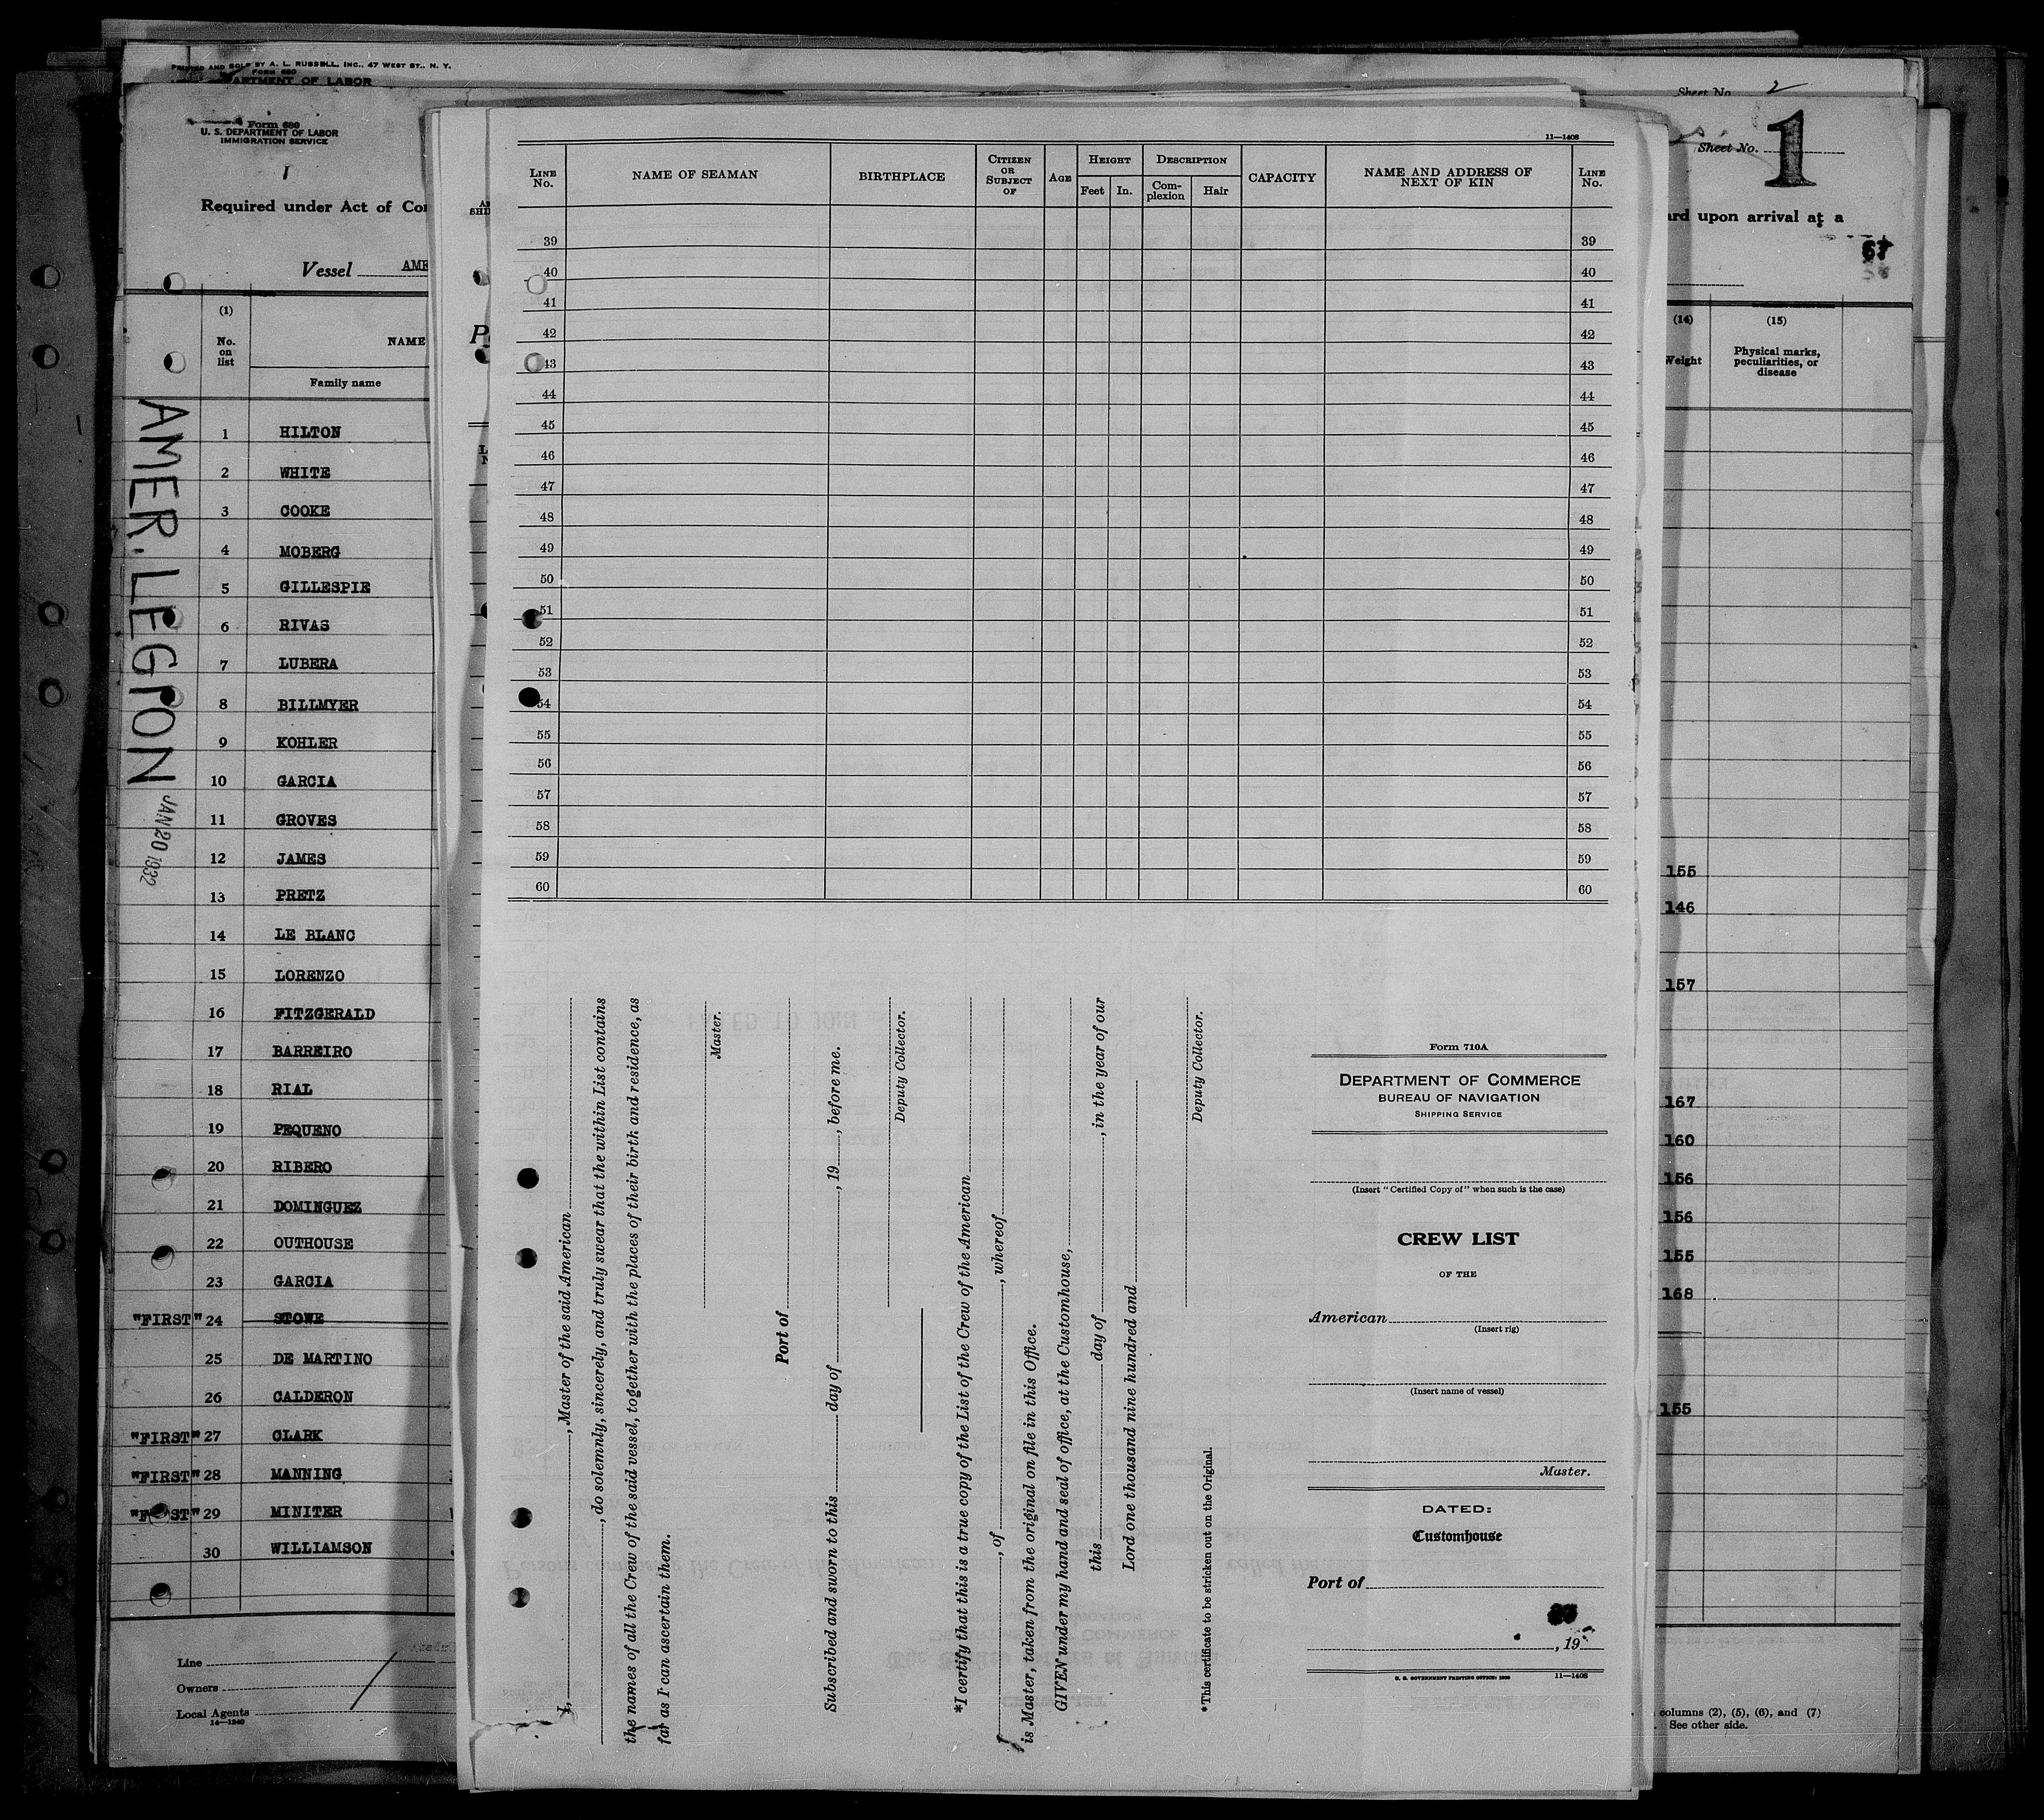 PRINTED AND SOLD BY A. L. RUSSELL, INC., 47 WEST ST., N. Y.
FORM 680
DEPARTMENT OF LABOR
Sheet No. 2
Form 680
U. S. DEPARTMENT OF LABOR
IMMIGRATION SERVICE
Sheet No. 1
Required under Act of
ard upon arrival at a
67
Vessel AME
(1)
No. on list
NAME
Family name
(14)
Weight
(15)
Physical marks, peculiarities, or disease
AMER. LEGION
JAN 20 1932
1 HILTON
2 WHITE
3 COOKE
4 MOBERG
5 GILLESPIE
6 RIVAS
7 LUBERA
8 BILLMYER
9 KOHLER
10 GARCIA
11 GROVES
12 JAMES 155
13 PRETZ 146
14 LE BLANC
15 LORENZO 157
16 FITZGERALD
17 BARREIRO
18 RIAL 167
19 PEQUENO 160
20 RIBERO 156
21 DOMINGUEZ 156
22 OUTHOUSE 155
23 GARCIA 168
"FIRST" 24 STOWE
25 DE MARTINO
26 CALDERON 155
"FIRST" 27 CLARK
"FIRST" 28 MANNING
"FIRST" 29 MINITER
30 WILLIAMSON
Line
Owners
Local Agents
14—1240
columns (2), (5), (6), and (7)
See other side.
11—1408
LINE No.
NAME OF SEAMAN
BIRTHPLACE
CITIZEN OR SUBJECT OF
AGE
HEIGHT
Feet In.
DESCRIPTION
Complexion Hair
CAPACITY
NAME AND ADDRESS OF NEXT OF KIN
LINE No.
39 39
40 40
41 41
42 42
43 43
44 44
45 45
46 46
47 47
48 48
49 49
50 50
51 51
52 52
53 53
54 54
55 55
56 56
57 57
58 58
59 59
60 60
I, , Master of the said American
, do solemnly, sincerely, and truly swear that the within List contains
the names of all the Crew of the said vessel, together with the places of their birth and residence, as
far as I can ascertain them.
Master.
Port of
Subscribed and sworn to this day of , 19 , before me.
Deputy Collector.
*I certify that this is a true copy of the List of the Crew of the American
, of , whereof
is Master, taken from the original on file in this Office.
GIVEN under my hand and seal of office, at the Customhouse,
this day of , in the year of our
Lord one thousand nine hundred and
Deputy Collector.
*This certificate to be stricken out on the Original.
Form 710A
DEPARTMENT OF COMMERCE
BUREAU OF NAVIGATION
SHIPPING SERVICE
(Insert "Certified Copy of" when such is the case)
CREW LIST
OF THE
American
(Insert rig)
(Insert name of vessel)
Master.
DATED:
Customhouse
Port of
, 19
U. S. GOVERNMENT PRINTING OFFICE: 1930 11—1408